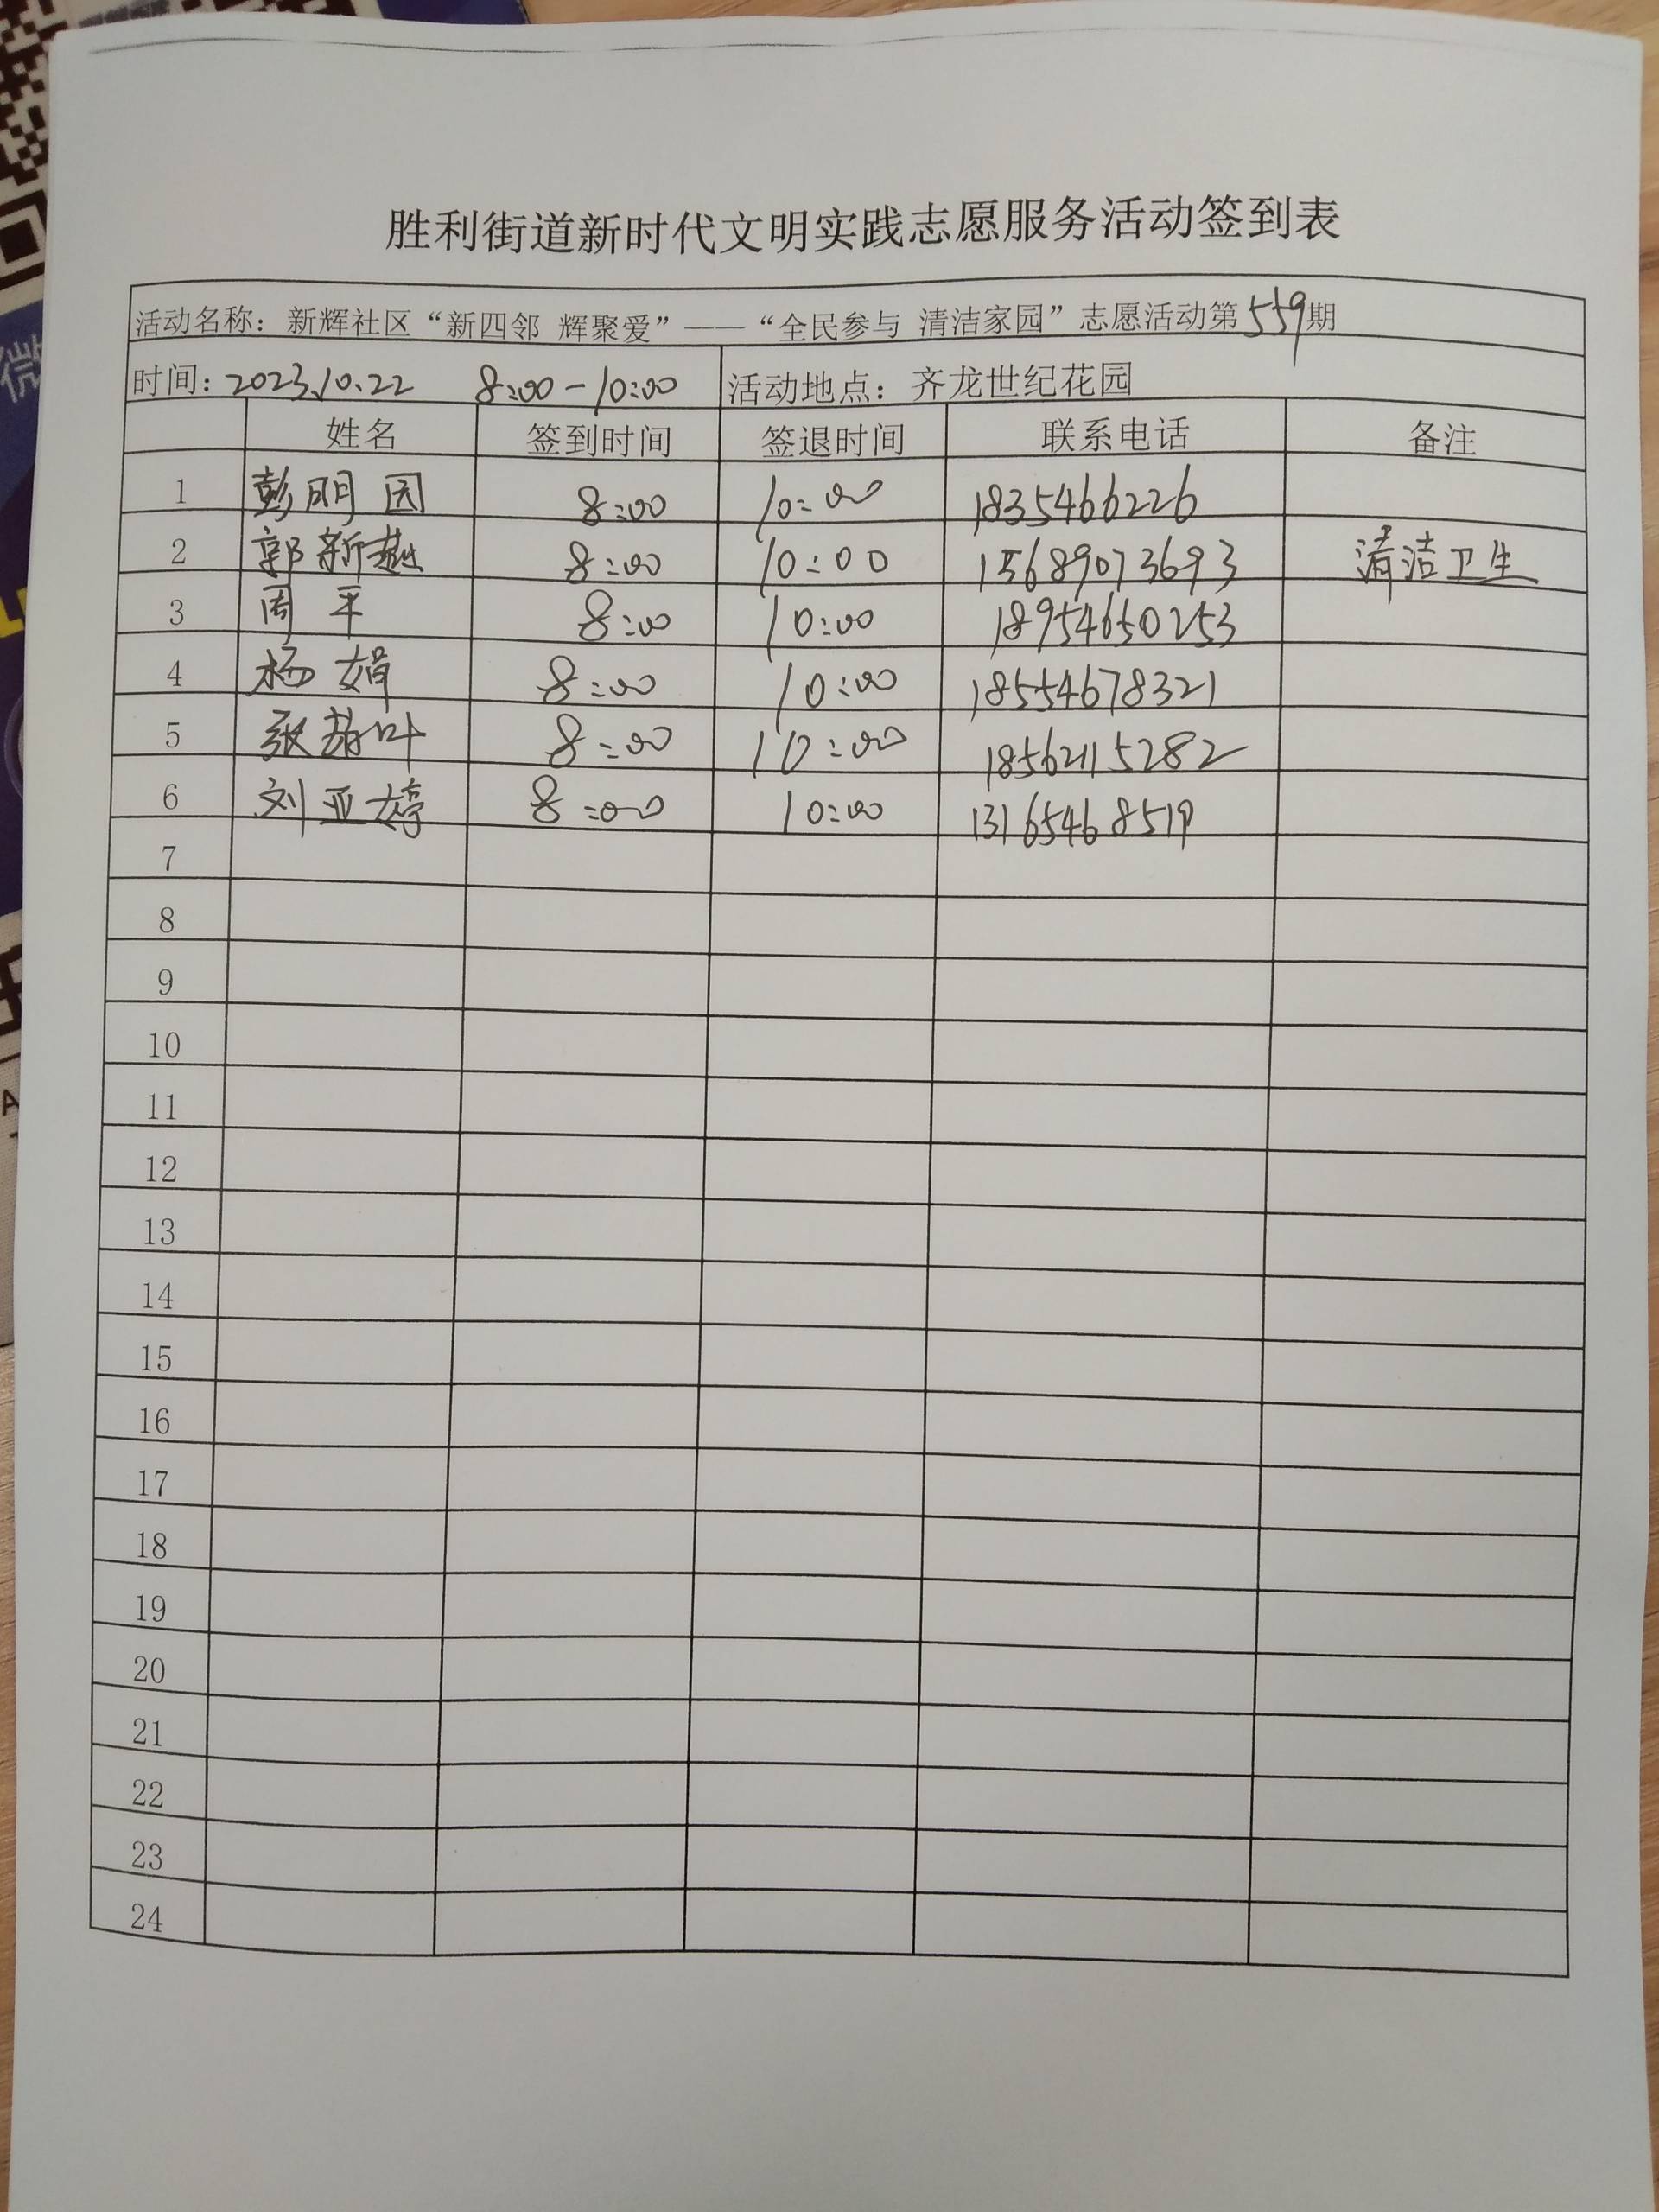 微
胜利街道新时代文明实践志愿服务活动签到表
活动名称：新辉社区“新四邻 辉聚爱”——“全民参与 清洁家园”志愿活动第559期
时间：2023.10.22 8:00-10:00 活动地点：齐龙世纪花园
姓名 签到时间 签退时间 联系电话 备注
1 彭明园 8:00 10:00 1835466226
2 郭新越 8:00 10:00 15689073693 清洁卫生
3 周平 8:00 10:00 18954650253
4 杨娟 8:00 10:00 18554678321
5 张 叶 8:00 10:00 18562115282
6 刘亚婷 8:00 10:00 13165468519
7
8
9
10
11
12
13
14
15
16
17
18
19
20
21
22
23
24